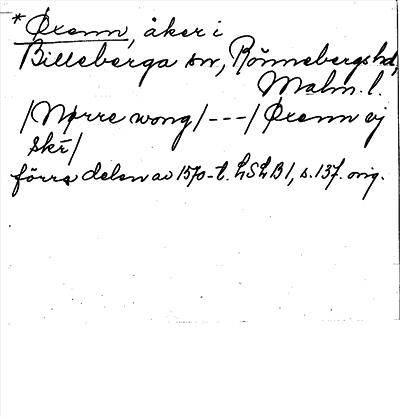 * Ørenn, åker i
Billeberga sn, Rönnebergs hd,
Malm. l.
/Nørre wong/ - - - / Ørenn ej
skr/
förra delen av 1570-t. LSLB 1, s. 137. orig.